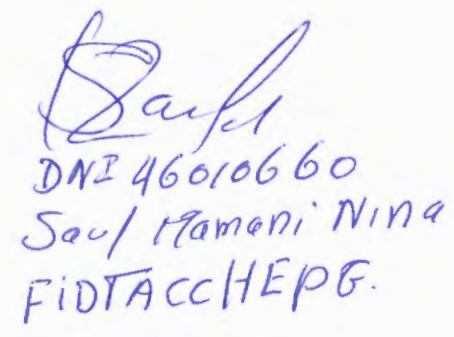 DNI 46010660
Saul Mamani Nina
FIDTACCHEPG.